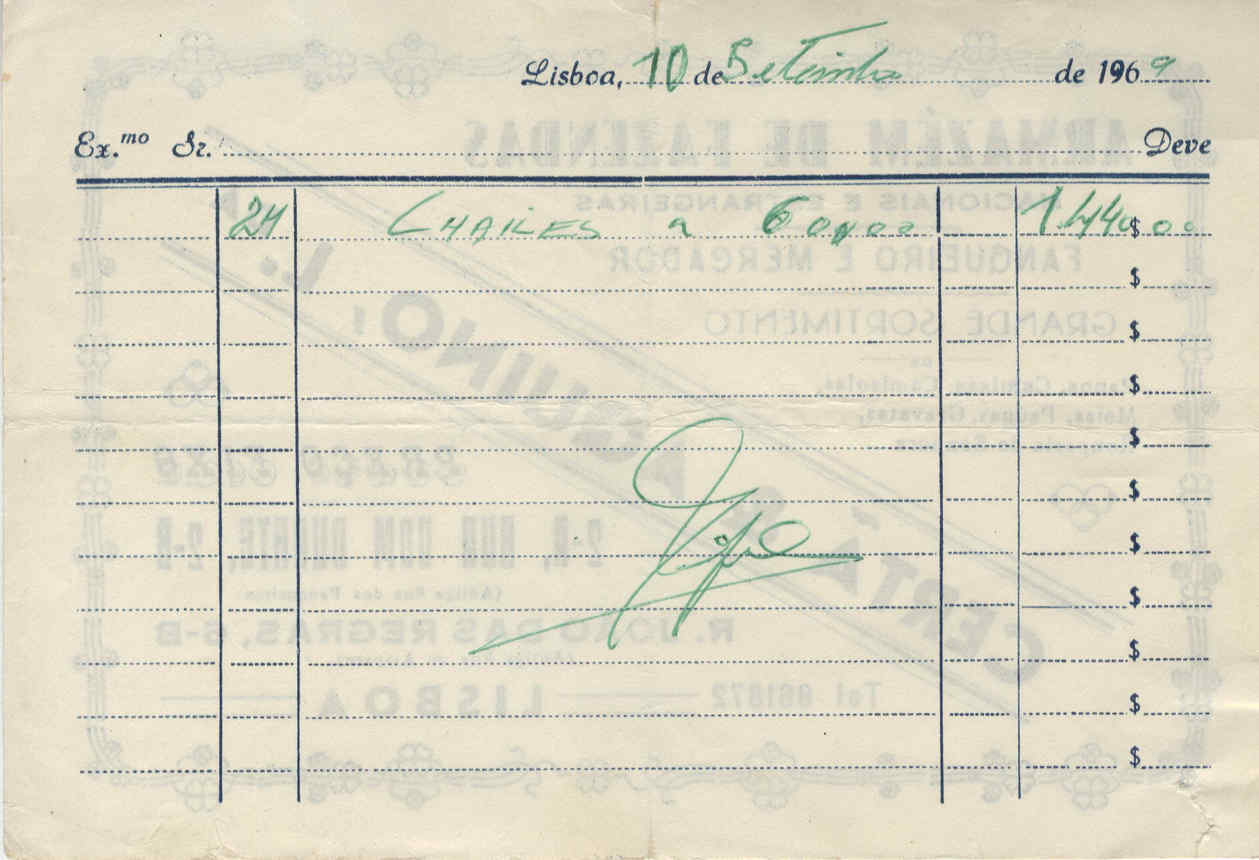 Lisboa, 10 de Setembro de 1969
Ex.mo Sr. Deve
24 CHAILES a 60$00 1.440$00
$
$
$
$
$
$
$
$
$
$
ARMAZÉM DE FAZENDAS
NACIONAIS E ESTRANGEIRAS
FANQUEIRO E MERCADOR
GRANDE SORTIMENTO
DE
Panos, Camisas, Camisolas,
Meias, Peúgas, Gravatas,
CERTÃ & AQUINO, L.DA
PREÇO FIXO
2-A, RUA DOM DUARTE, 2-B
R. JOÃO DAS REGRAS, 6-B
Tel 861872 LISBOA